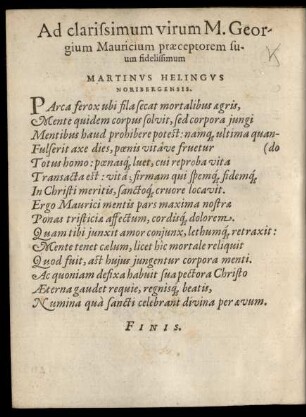 Ad clarissimum virum M. Geor-
gium Mauricium præceptorem su-
um fidelissimum
MARTINVS HELINGVS
NORIBERGENSIS.
PArca ferox ubi fila secat mortalibus ægris,
Mente quidem corpus solvit, sed corpora jungi
Mentibus haud prohibere potest: namq; ultima quan-
Fulserit axe dies, pœnis vitáve fruetur (do
Totus homo: pœnasq́; luet, cui reproba vita
Transacta est: vitâ, firmam qui spemq́;, fidemq́;
In Christi meritis, sanctoq́; cruore locavit.
Ergo Maurici mentis pars maxima nostra
Ponas tristiciæ affectum, cordisq́; dolorem.
Quam tibi junxit amor conjunx, lethumq́; retraxit:
Mente tenet cælum, licet hic mortale reliquit
Quod fuit, ast hujus jungentur corpora menti.
Ac quoniam defixa habuit sua pectora Christo
Æterna gaudet requie, regnisq́; beatis,
Numina quà sancti celebrant divina per ævum.
FINIS.